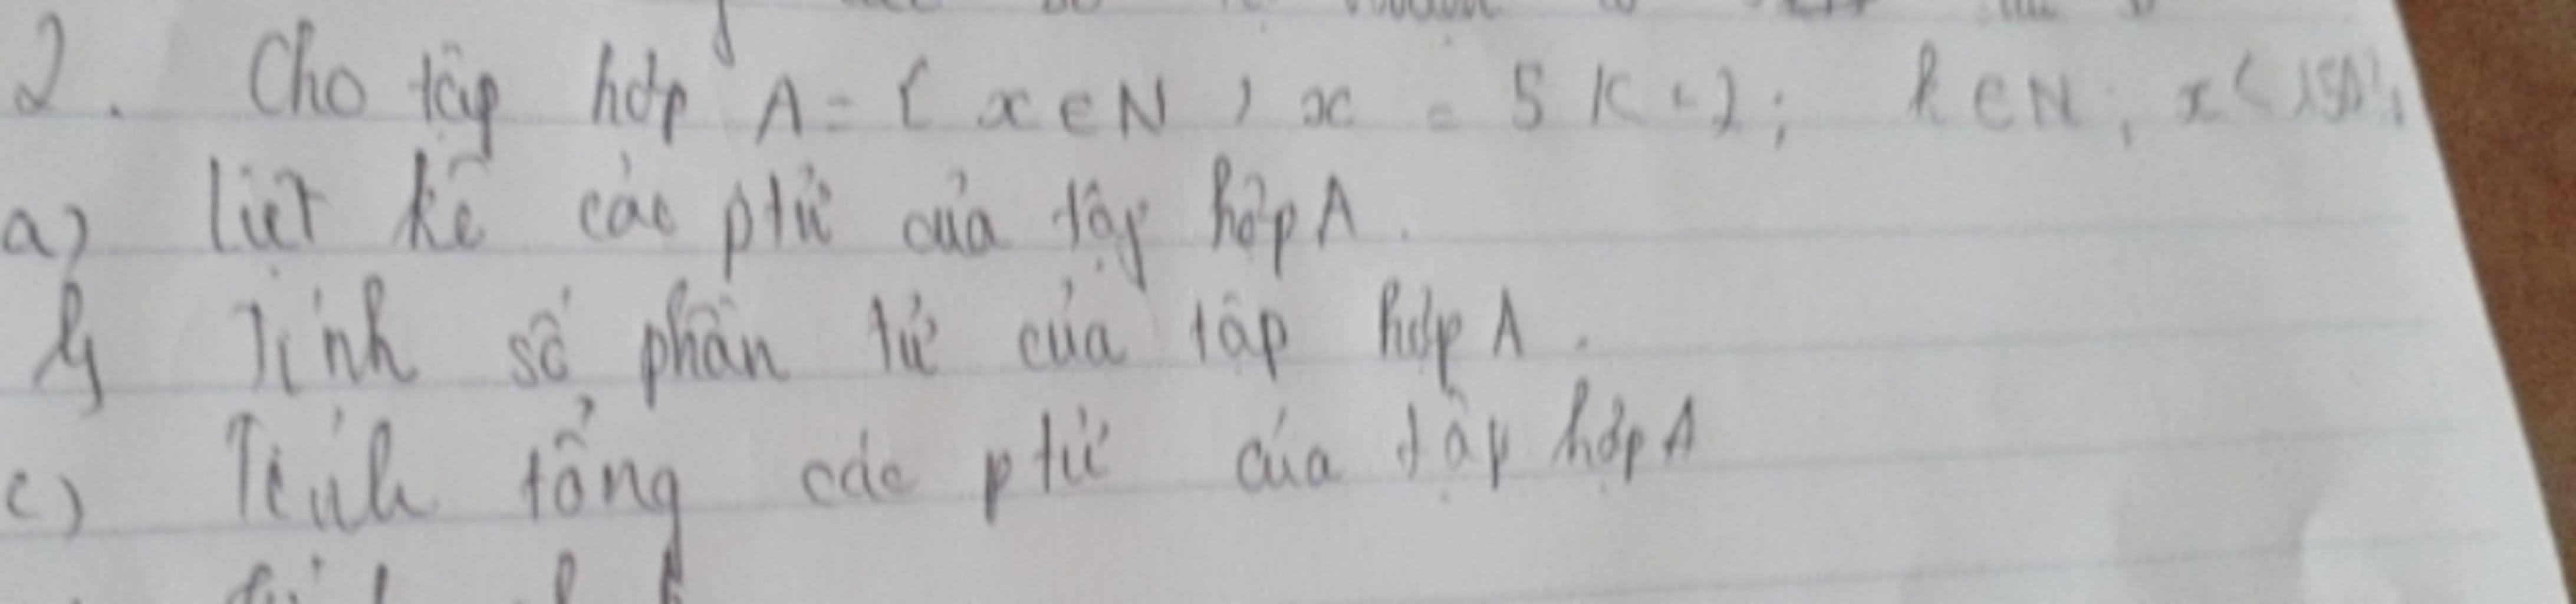 2. Cho tập hợp A = { x ∈ N, x = 5K+2; k ∈ N, x < 150},
a) liệt kê các ptử của tập hợp A.
b) Tính số phần tử của tập hợp A.
c) Tính tổng các ptử của tập hợp A